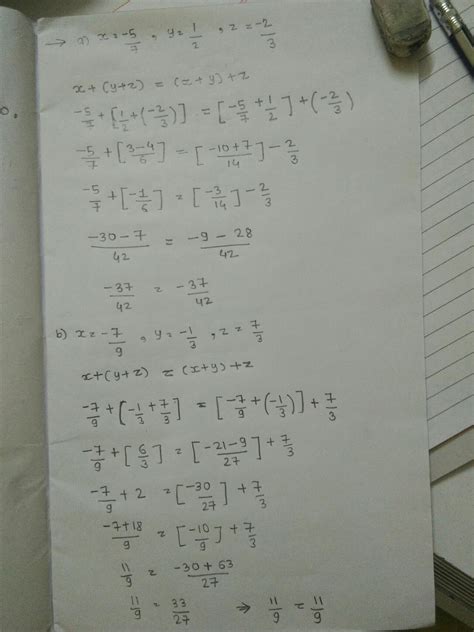 → a) x = -5/7 , y = 1/2 , z = -2/3
x + (y+z) = (x+y) + z
-5/7 + [1/2 + (-2/3)] = [-5/7 + 1/2] + (-2/3)
-5/7 + [3-4/6] = [-10+7/14] - 2/3
-5/7 + [-1/6] = [-3/14] - 2/3
-30-7/42 = -9-28/42
-37/42 = -37/42
b) x = -7/9 , y = -1/3 , z = 7/3
x+(y+z) = (x+y)+z
-7/9 + [-1/3 + 7/3] = [-7/9 + (-1/3)] + 7/3
-7/9 + [6/3] = [-21-9/27] + 7/3
-7/9 + 2 = [-30/27] + 7/3
-7+18/9 = [-10/9] + 7/3
11/9 = -30+63/27
11/9 = 33/27 ⇒ 11/9 = 11/9